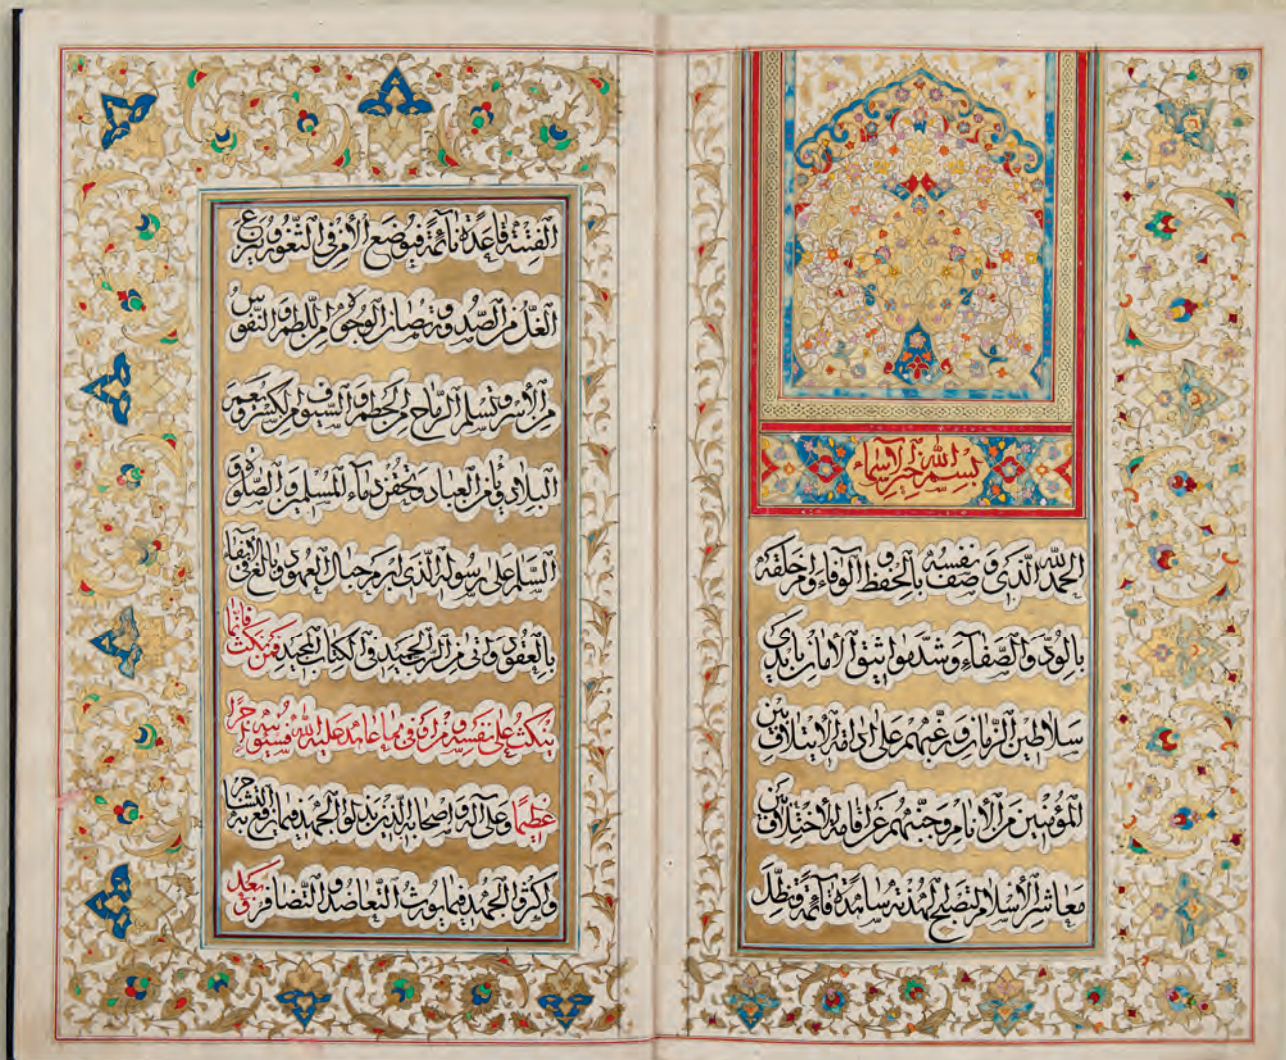 بسم الله خير الاسماء
الحمد لله الذی وصف نفسه بالحفظ و الوفاء و امر خلقه
بالودّ و الصّفاء و شدّ مواثیق الامان بایدی
سلاطین الزّمان و رغّبهم علی ادامة الایتلاف بین
المؤمنین من الأنام و جنّبهم عن اقامة الاختلاف بین
معاشر الأسلام لتصبح الهدنة سامدة قآئمة و تظلّ
الفتنة قاعدة نآئمة فیوضع الأمر فی الثّغور و ینزع
الغلّ من الصّدور و تصان الوجوه من اللّطم و النّفوس
من الأسر و تسلم الرّماح من الحطم و السّیوف من الکسر و تعمر
البلاد و یأمن العباد و تحقن دمآء المسلمین و الصّلوة و
السّلم علی رسوله الّذی ابرم حبال العهود و بالغ فی الایفاء
بالعقود و اتی من الرّبّ الحمید فی الکتاب المجید فمن نکث فانّما
ینکث علی نفسه و من اوفی بما عاهد علیه الله فسیؤتیه اجرًا
عظیمًا و علی آله و اصحابه الّذین بذلوا الجهد فیما یرفع به التشاجر
و کرّوا الجهد فیما یورث التّعاضد و التّضافر و بعد